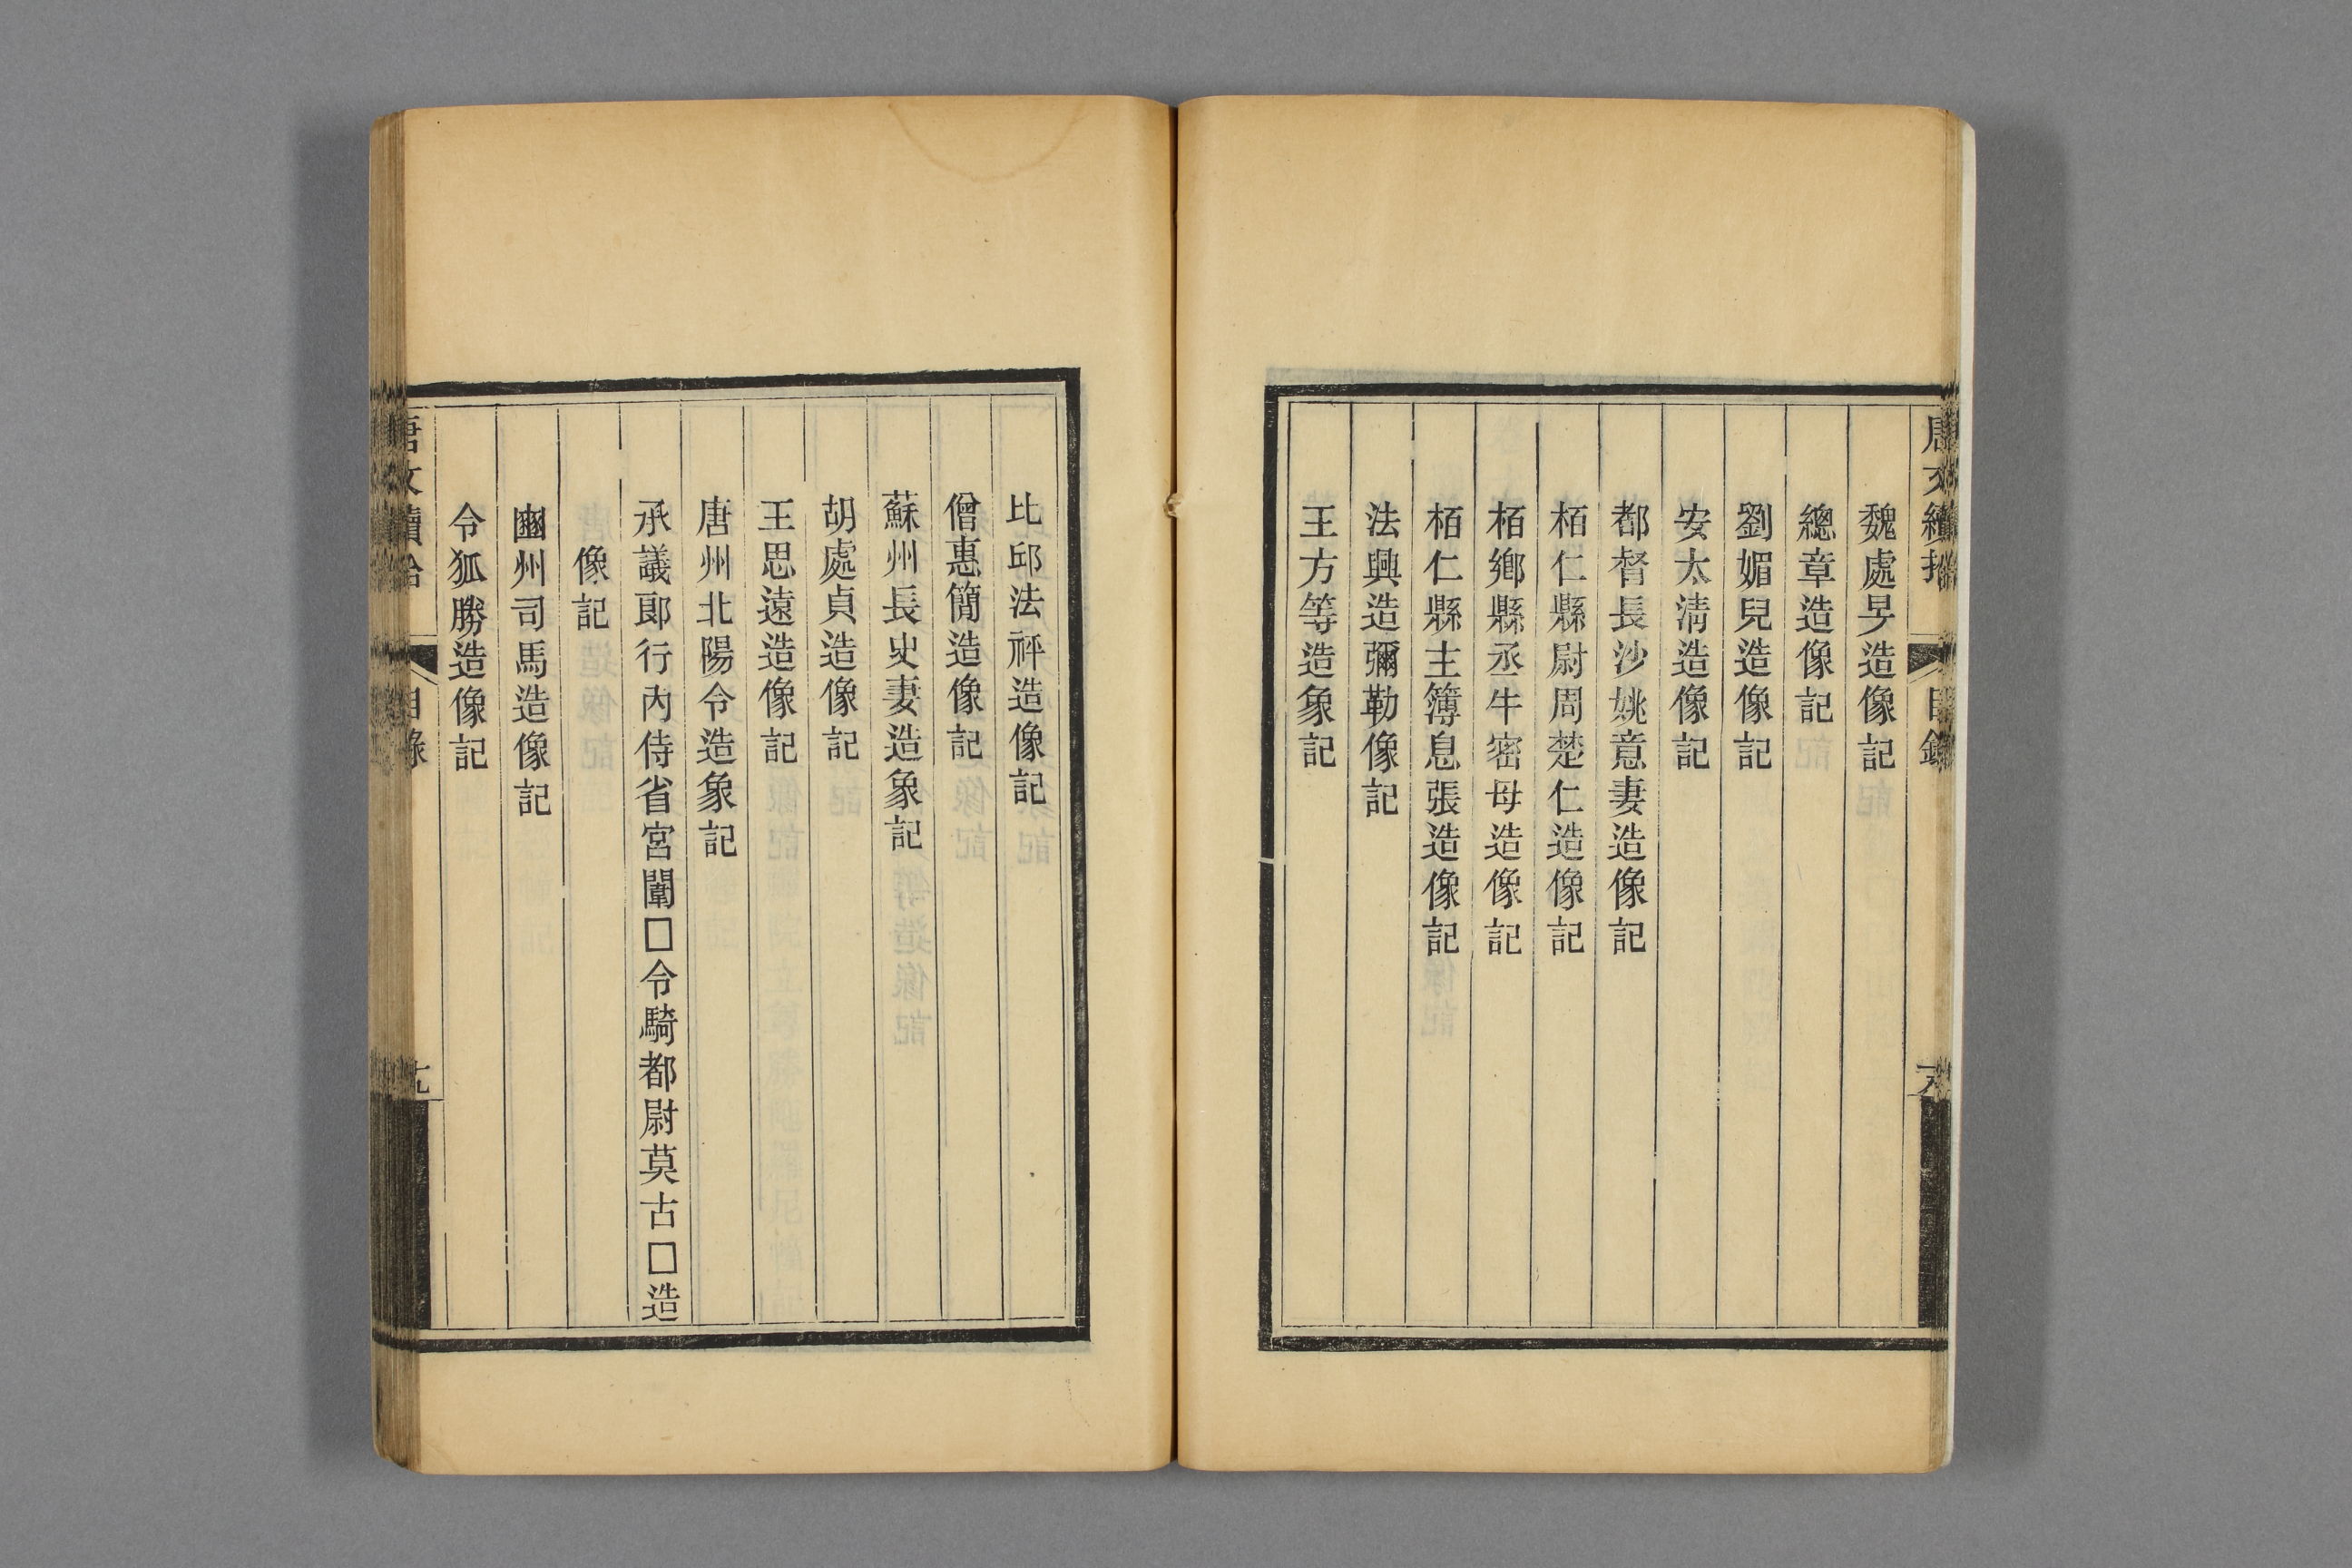 唐文續拾
目錄
六
魏處旻造像記
總章造像記
劉媚兒造像記
安太清造像記
都督長沙姚意妻造像記
栢仁縣尉周楚仁造像記
栢鄉縣丞牛密母造像記
栢仁縣主簿息張造像記
法興造彌勒像記
王方等造象記
比邱法祘造像記
僧惠簡造像記
蘇州長史妻造象記
胡處貞造像記
王思遠造像記
唐州北陽令造象記
承議郞行內侍省宮闈□令騎都尉莫古□造
像記
豳州司馬造像記
令狐勝造像記
唐文續拾
目錄